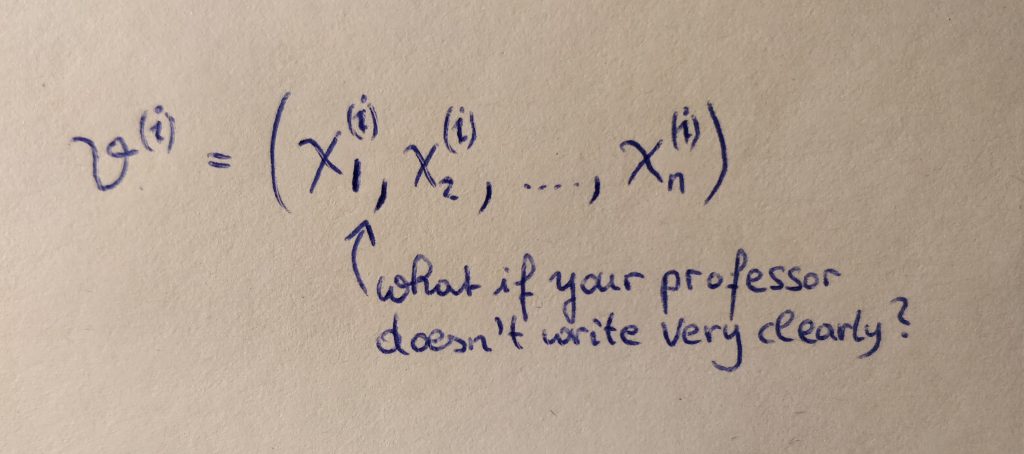 ϑ⁽ⁱ⁾ = (χ₁⁽ⁱ⁾, χ₂⁽ⁱ⁾, ...., χₙ⁽ⁱ⁾)
what if your professor
doesn't write very clearly?